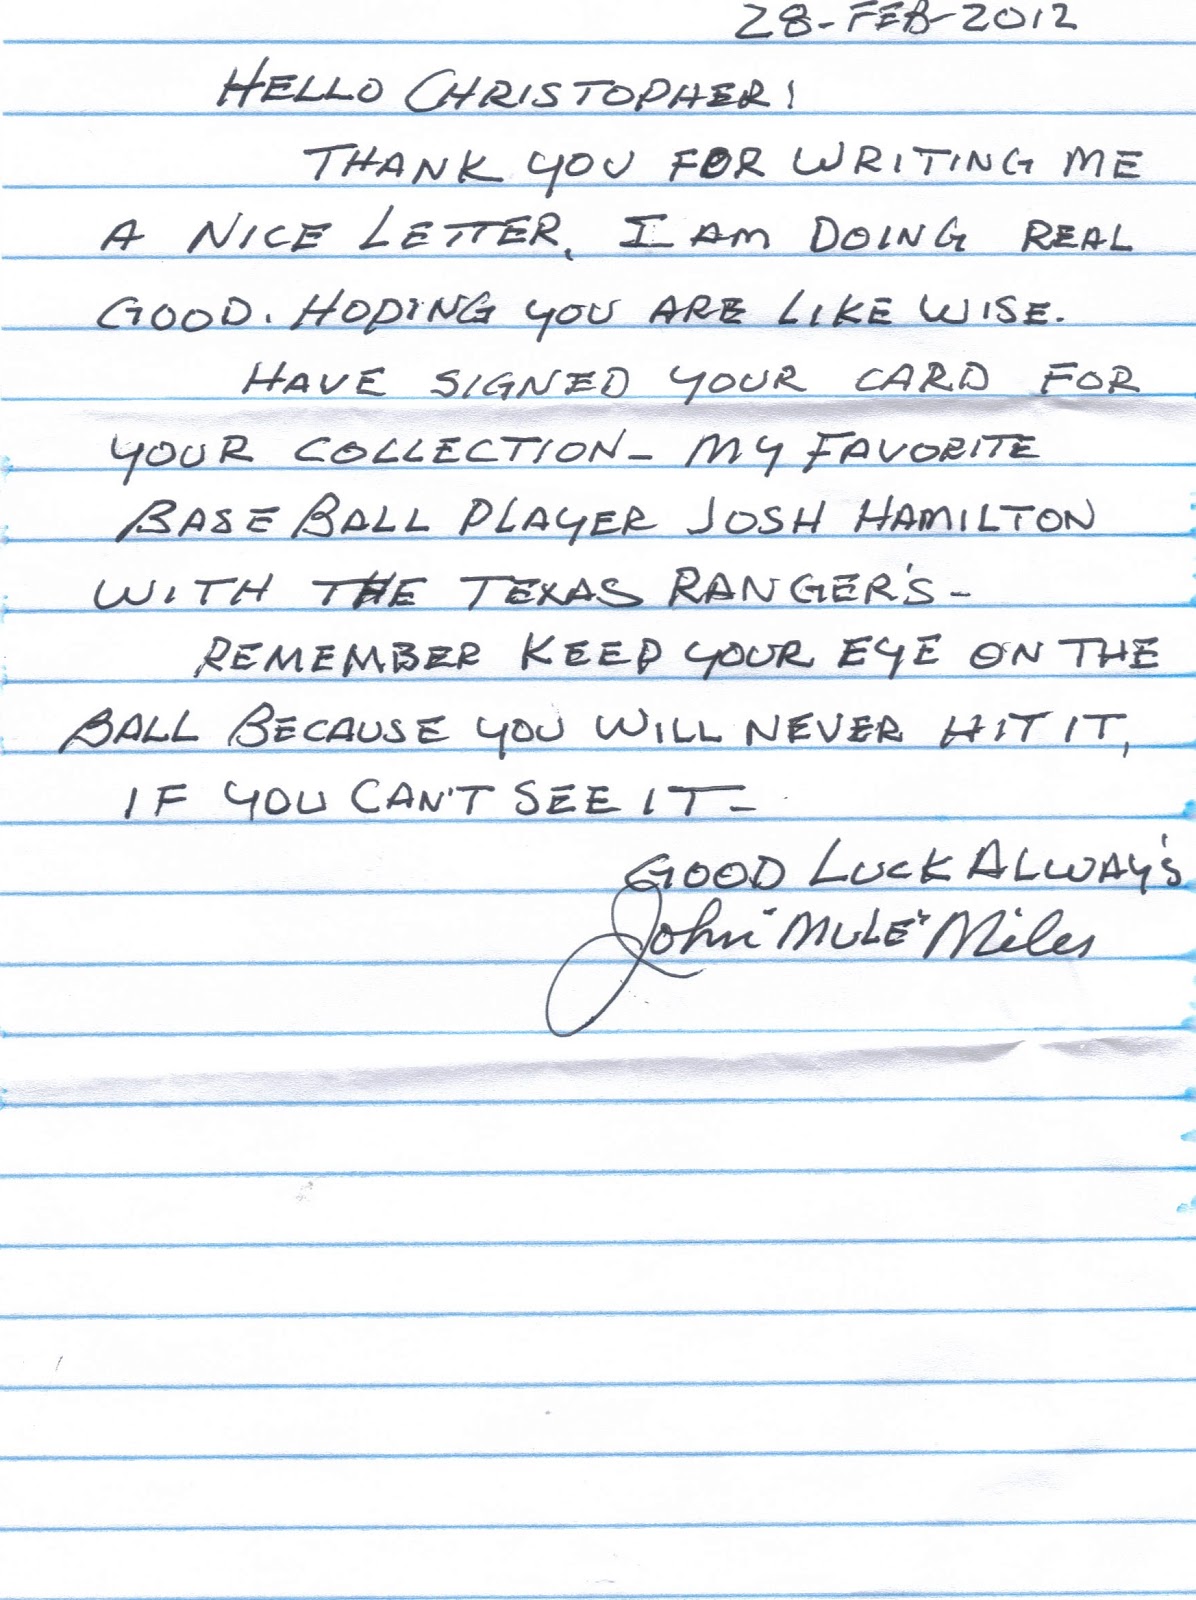 28-FEB-2012
HELLO CHRISTOPHER!
THANK YOU FOR WRITING ME
A NICE LETTER. I AM DOING REAL
GOOD. HOPING YOU ARE LIKE WISE.
HAVE SIGNED YOUR CARD FOR
YOUR COLLECTION- MY FAVORITE
BASE BALL PLAYER JOSH HAMILTON
WITH THE TEXAS RANGER'S-
REMEMBER KEEP YOUR EYE ON THE
BALL BECAUSE YOU WILL NEVER HIT IT,
IF YOU CAN'T SEE IT-
GOOD LUCK ALWAY'S
John "MULE" Miles